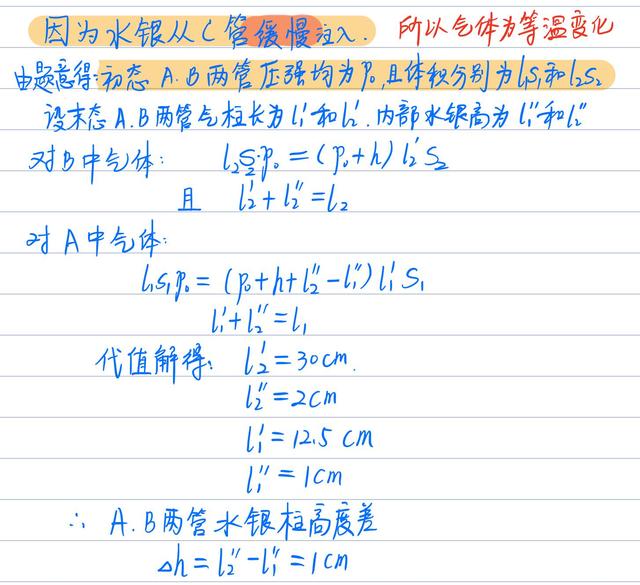 因为水银从C管缓慢注入. 所以气体为等温变化
由题意得:初态A.B两管压强均为P₀,且体积分别为l₁S₁和l₂S₂
设末态A.B两管气柱长为l₁'和l₂'.内部水银高为l₁''和l₂''
对B中气体: l₂S₂P₀=(P₀+h)l₂'S₂
且 l₂'+l₂''=l₂
对A中气体:
l₁S₁P₀=(P₀+h+l₂''-l₁'')l₁'S₁
l₁'+l₂''=l₁
代值解得: l₂'=30cm.
l₂''=2cm
l₁'=12.5cm
l₁''=1cm
∴ A.B两管水银柱高度差
△h=l₂''-l₁''=1cm